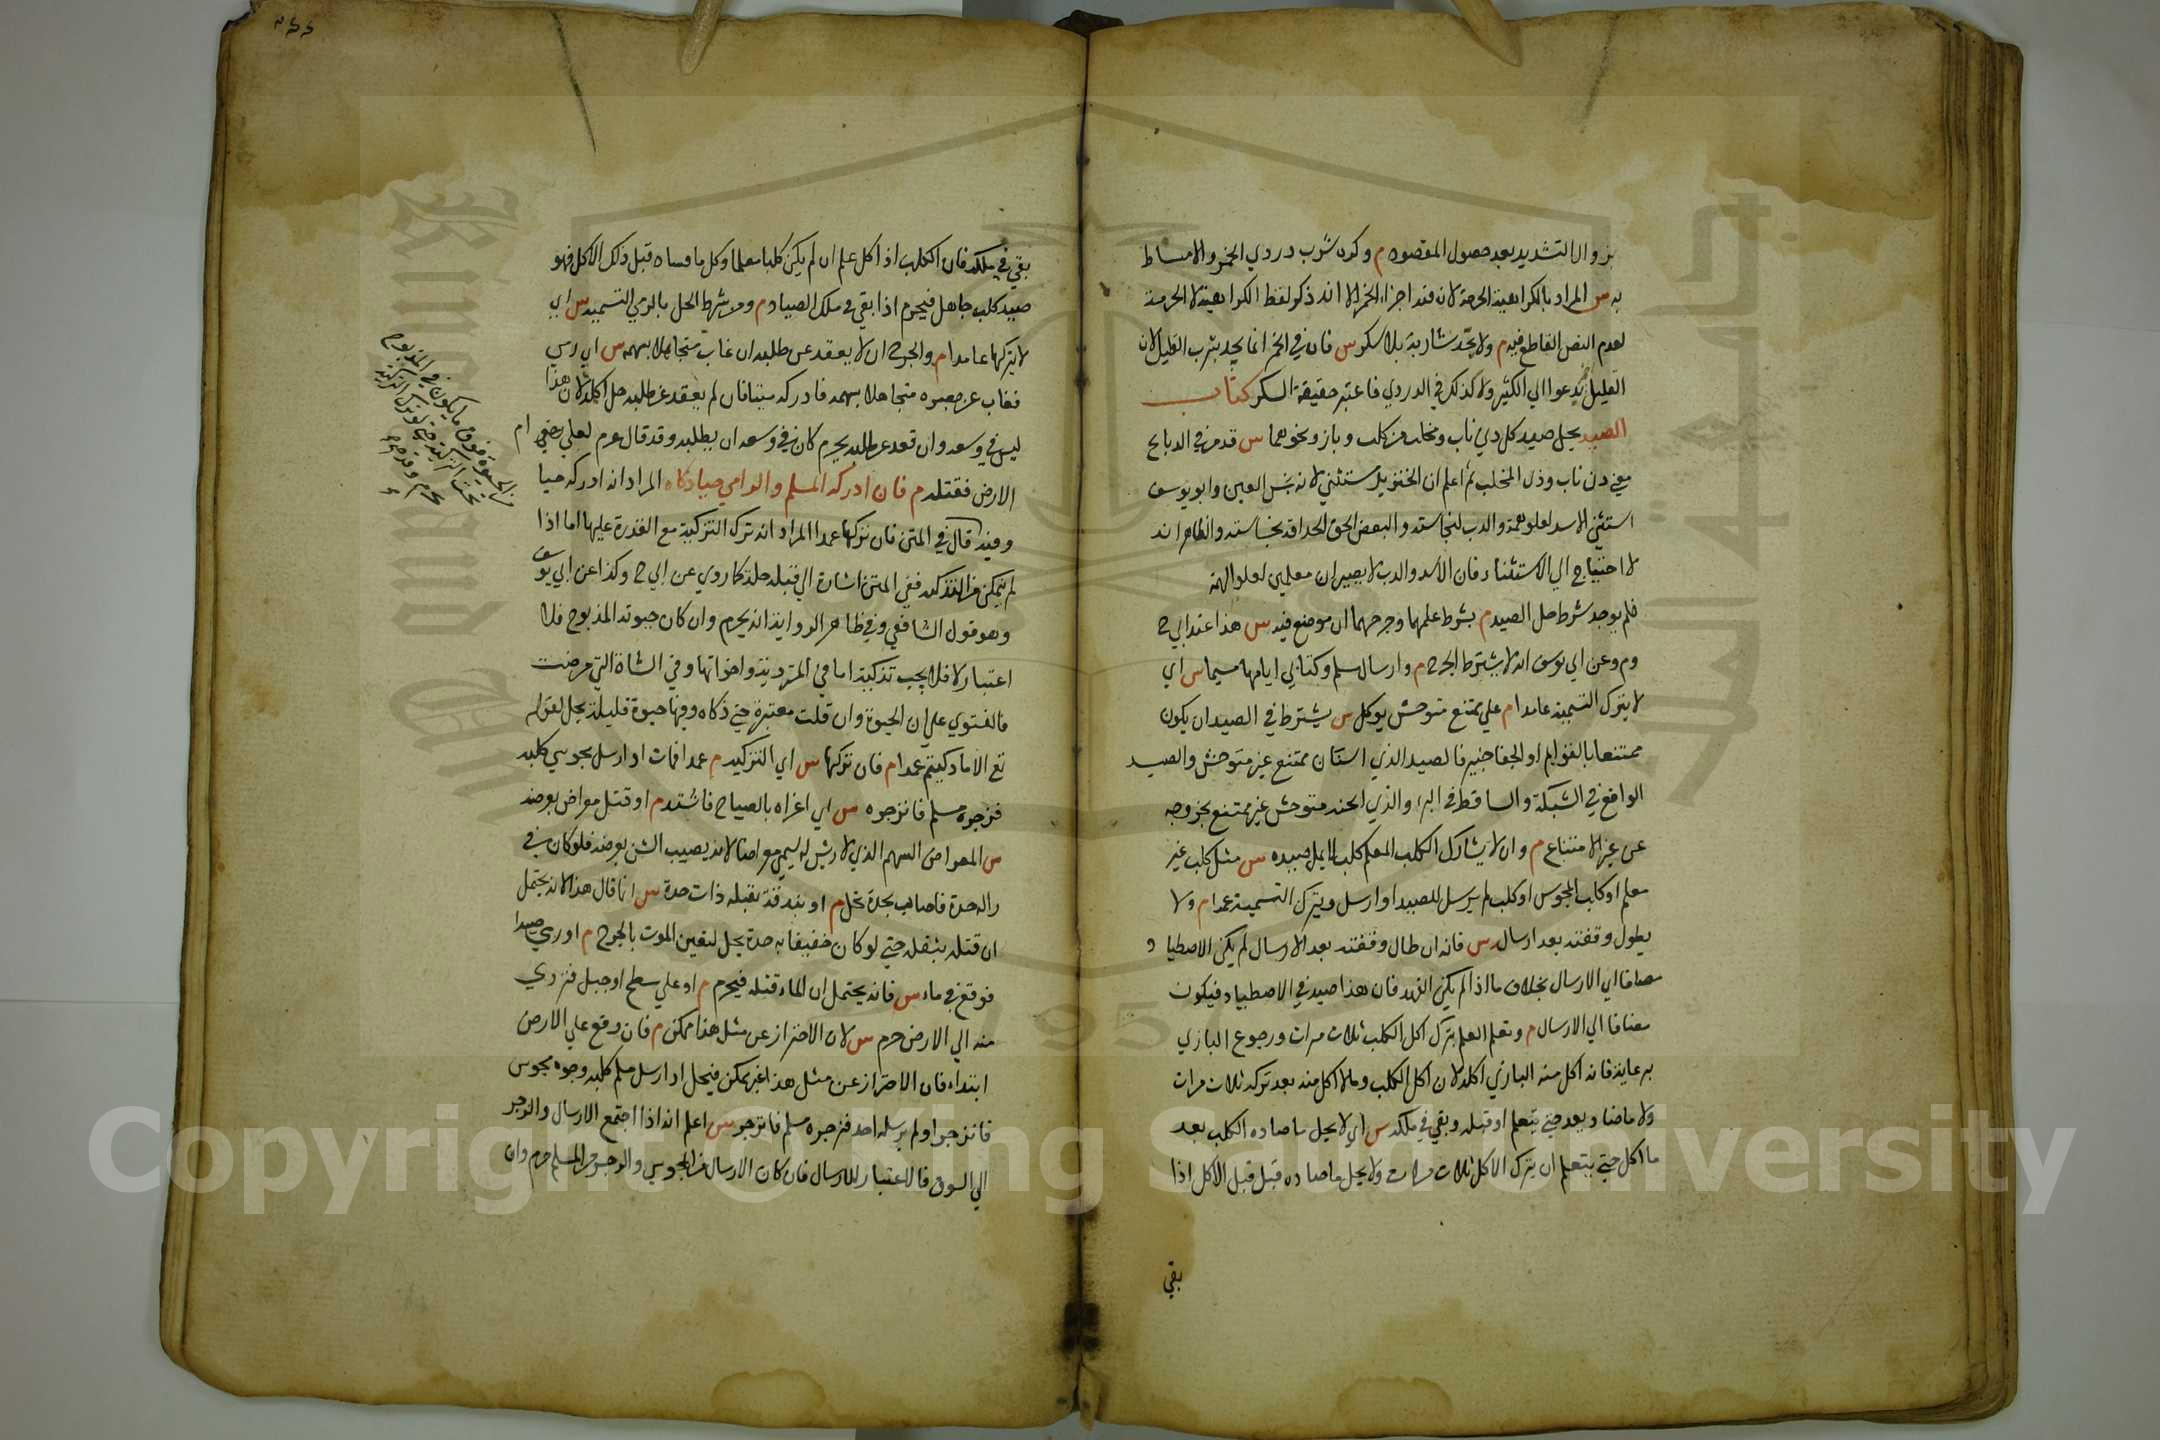 بزوال التشديد بعد حصول المقصود م وكره شرب دردي الخمر والامتشاط
به س المراد بالكراهية الحرمة لان فيه اجزاء الخمر الا انه ذكر لفظ الكراهية لا الحرمة
لعدم النص القاطع فيه م ولا يحد شاربه بلا سكر س فان في الخمر انما يحد بشرب القليل لان
القليل يدعوا الي الكثير ولا كذلك في الدردي فاعتبر حقيقة السكر كتاب
الصيد يحل صيد كل ذي ناب ومخلب من كلب وباز ونحوهما س قد مر في الدبايح
معني ذي ناب وذي المخلب ثم اعلم ان الخنزير مستثني لانه نجس العين وابو يوسف
استثني الاسد لعلو همته والدب لنجاسته والبعض الحق الحداة به لخساسته والظاهر انه
لا احتياج الي الاستثناء فان الاسد والدب لا يصيران معلمين لعلو الهمة
فلم يوجد شرط حل الصيد م بشرط علمهما وجرحهما اي موضع فيه س هذا عند ابي ح
وم وعن ابي يوسف انه لا يشترط الجرح م وارسال مسلم وكتابي اياهما مسميا س اي
لا يترك التسمية عامدا م علي ممتنع متوحش يوكل س يشترط في الصيد ان يكون
ممتنعا بالقوايم او الجناحين فالصيد الذي استانس ممتنع غير متوحش والصيد
الواقع في الشبكة والساقط في البير والذي اثخنه متوحش غير ممتنع لخروجه
عن حيز الامتناع م وان لا يشارك الكلب المعلم كلب لا يحل صيده س مثل كلب غير
معلم او كلب المجوس او كلب لم يرسل للصيد او ارسل وبترك التسمية عمدا م ولا
يطول وقفته بعد ارساله س فانه ان طال وقفته بعد الارسال لم يكن الاصطياد
مضافا الي الارسال بخلاف ما اذا لم يكن الفهد فان هذا صيد في الاصطياد فيكون
مضافا الي الارسال م وتعلم المعلم بترك اكل الكلب ثلاث مرات ورجوع البازي
بدعايه فانه اكل منه البازي اكل لا ان اكل الكلب ولا ما اكل منه بعد تركه ثلاث مرات
ولا ما صاد بعده حتي يتعلم او قبله وبقي في ملكه س اي لا يحل ما صاده الكلب بعد
ما اكل حتي يتعلم اي يترك الاكل ثلاث مرات ولا يحل ما صاده قبل قبل الاكل اذا
بقي
بقي في ملكه فان الكلب اذا اكل علم ان لم يكن كلبا معلما وكل ما صاده قبل ذلك الاكل فهو
صيد كلب جاهل فيحرم اذا بقي في ملك الصياد م وشرط الحل بالرمي التسمية س اي
لا يتركها عامدا م والجرح ان لا يقعد عن طلبه ان غاب متحاملا بسهمه س اي رمي
فغاب عن بصره متحاملا بسهمه فادركه ميتا فان لم يقعد عن طلبه حل اكله لان هذا
ليس في وسعه وان قعد عن طلبه يحرم كان في وسعه ان يطلبه وقد قال عم لعل هوام
الارض قتلته م فان ادركه المسلم والرامي حيا ذكاه المراد انه ادركه حيا
وفيه قال في المتن فان تركها عمدا المراد انه ترك التزكية مع القدرة عليها اما اذا
لم يتمكن من التذكية ففي المتن اشارة الي قتله حله كما روي عن ابي ح وكذا عن ابي يوسف
وهو قول الشافعي وفي ظاهر الرواية انه يحرم وان كان حيوته المذبوح فلا
اعتبار لا فلا يجب تذكيته اما في المتردية واخواتها وفي الشاة التي مرضت
فالفتوي علي ان الحيوة وان قلت معتبرة حتي ذكاه وفيها حيوة قليلة يحل لقوله
تع الا ما ذكيتم عمدا م فان تركها س اي التزكية م عمدا فمات او ارسل مجوسي كلبه
فزجره مسلم فانزجره س اي اغراه بالصياح فاشتد م او قتل معراض بعرضه
س المعراض السهم الذي لا ريش له سمي معراضا لانه يصيب الشئ بعرضه فلو كان في
راسه حدة فاصاب بحدة يحل م او بندقة ثقيلة ذات حدة س انما قال هذا لانه يحتمل
ان قتله بثقله حتي لو كان خفيفا به حدة يحل لتعين الموت بالجرح م او رمي صيدا
فوقع في ماء س فانه يحتمل ان الماء قتله فيحرم م او علي سطح او جبل فتردي
منه الي الارض حرم س لان الاحتراز عن مثل هذا ممكن م فان وقع علي الارض
ابتداء فان الاحتراز عن مثل هذا غير ممكن فيحل او ارسل مسلم كلبه وزجره مجوس
فانزجر او لم يرسله احد فزجره مسلم فانزجر س اعلم انه اذا اجتمع الارسال والزجر
الي السوق فالاعتبار للارسال فان كان الارسال من المجوس والزجر من المسلم حرم وان
Copyright © King Saud University
King Saud University
1957